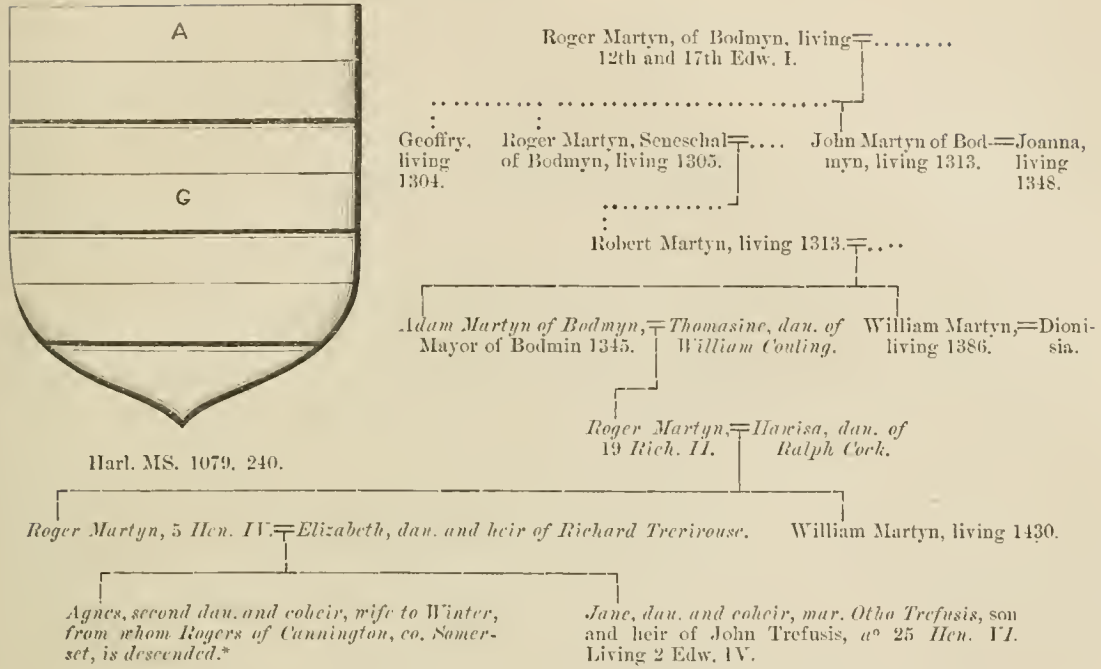 A
G
Harl. MS. 1079. 240.
Roger Martyn, of Bodmyn, living=........
12th and 17th Edw. I.
Geoffry,
living
1304.
Roger Martyn, Seneschal=....
of Bodmyn, living 1305.
John Martyn of Bod-=Joanna,
myn, living 1313.
living
1348.
Robert Martyn, living 1313.=....
Adam Martyn of Bodmyn,=Thomasine, dau. of
Mayor of Bodmin 1345.
William Couling.
William Martyn,=Dioni-
living 1386.
sia.
Roger Martyn,=Hawisa, dau. of
19 Rich. II.
Ralph Cork.
Roger Martyn, 5 Hen. IV.=Elizabeth, dau. and heir of Richard Trerirouse.
William Martyn, living 1430.
Agnes, second dau. and coheir, wife to Winter,
from whom Rogers of Cannington, co. Somer-
set, is descended.*
Jane, dau. and coheir, mar. Otho Trefusis, son
and heir of John Trefusis, aº 25 Hen. VI.
Living 2 Edw. IV.